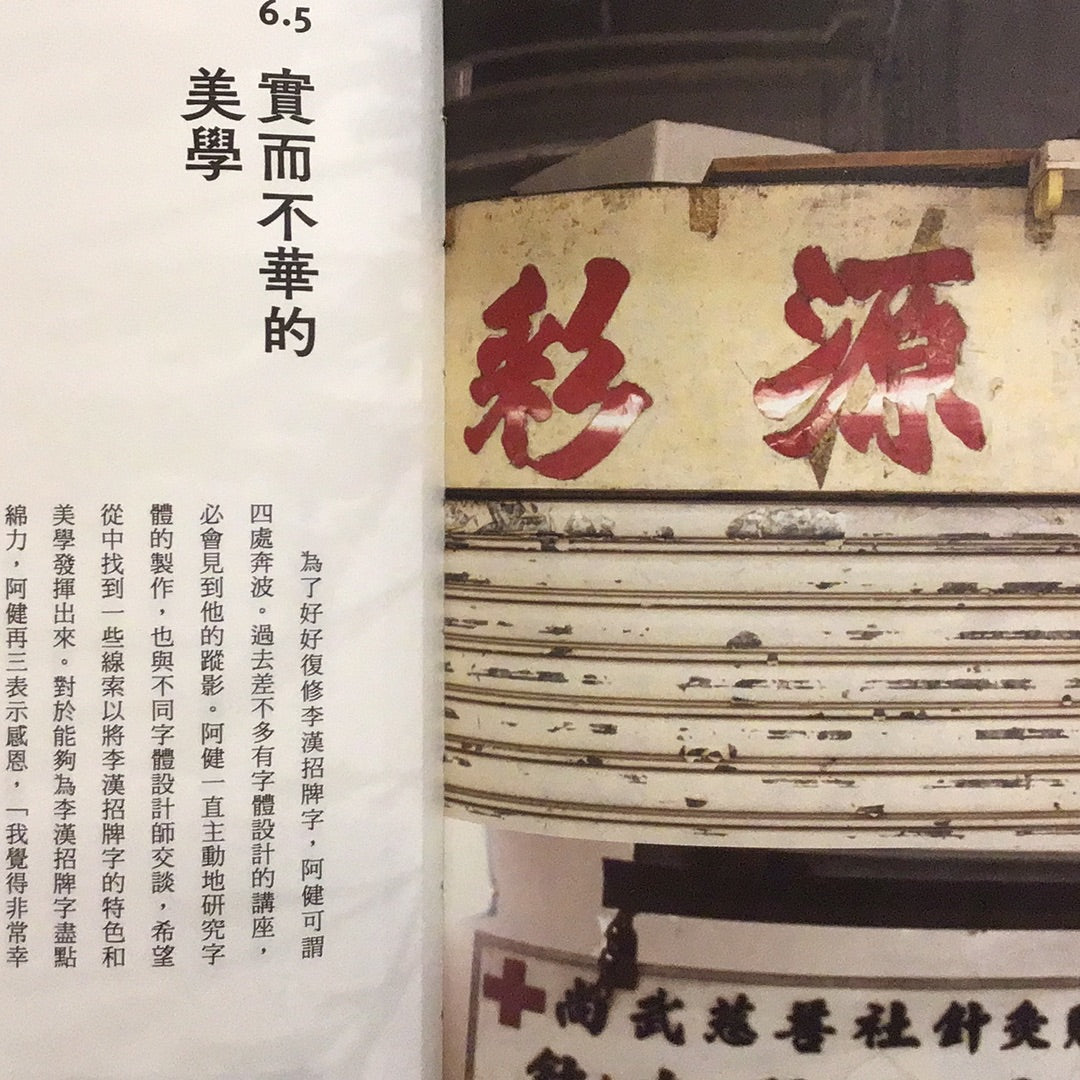 6.5
實而不華的
美學
為了好好復修李漢招牌字，阿健可謂
四處奔波。過去差不多有字體設計的講座，
必會見到他的蹤影。阿健一直主動地研究字
體的製作，也與不同字體設計師交談，希望
從中找到一些線索以將李漢招牌字的特色和
美學發揮出來。對於能夠為李漢招牌字盡點
綿力，阿健再三表示感恩，「我覺得非常幸
彩源
尚武慈善社針灸